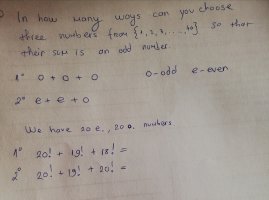 In how many ways can you choose
three numbers from {1, 2, 3, ..., 40} so that
their sum is an odd number.
1° o + o + o o-odd e-even
2° e + e + o
We have 20 e., 20 o. numbers
1° 20! + 19! + 18! =
2° 20! + 19! + 20! =